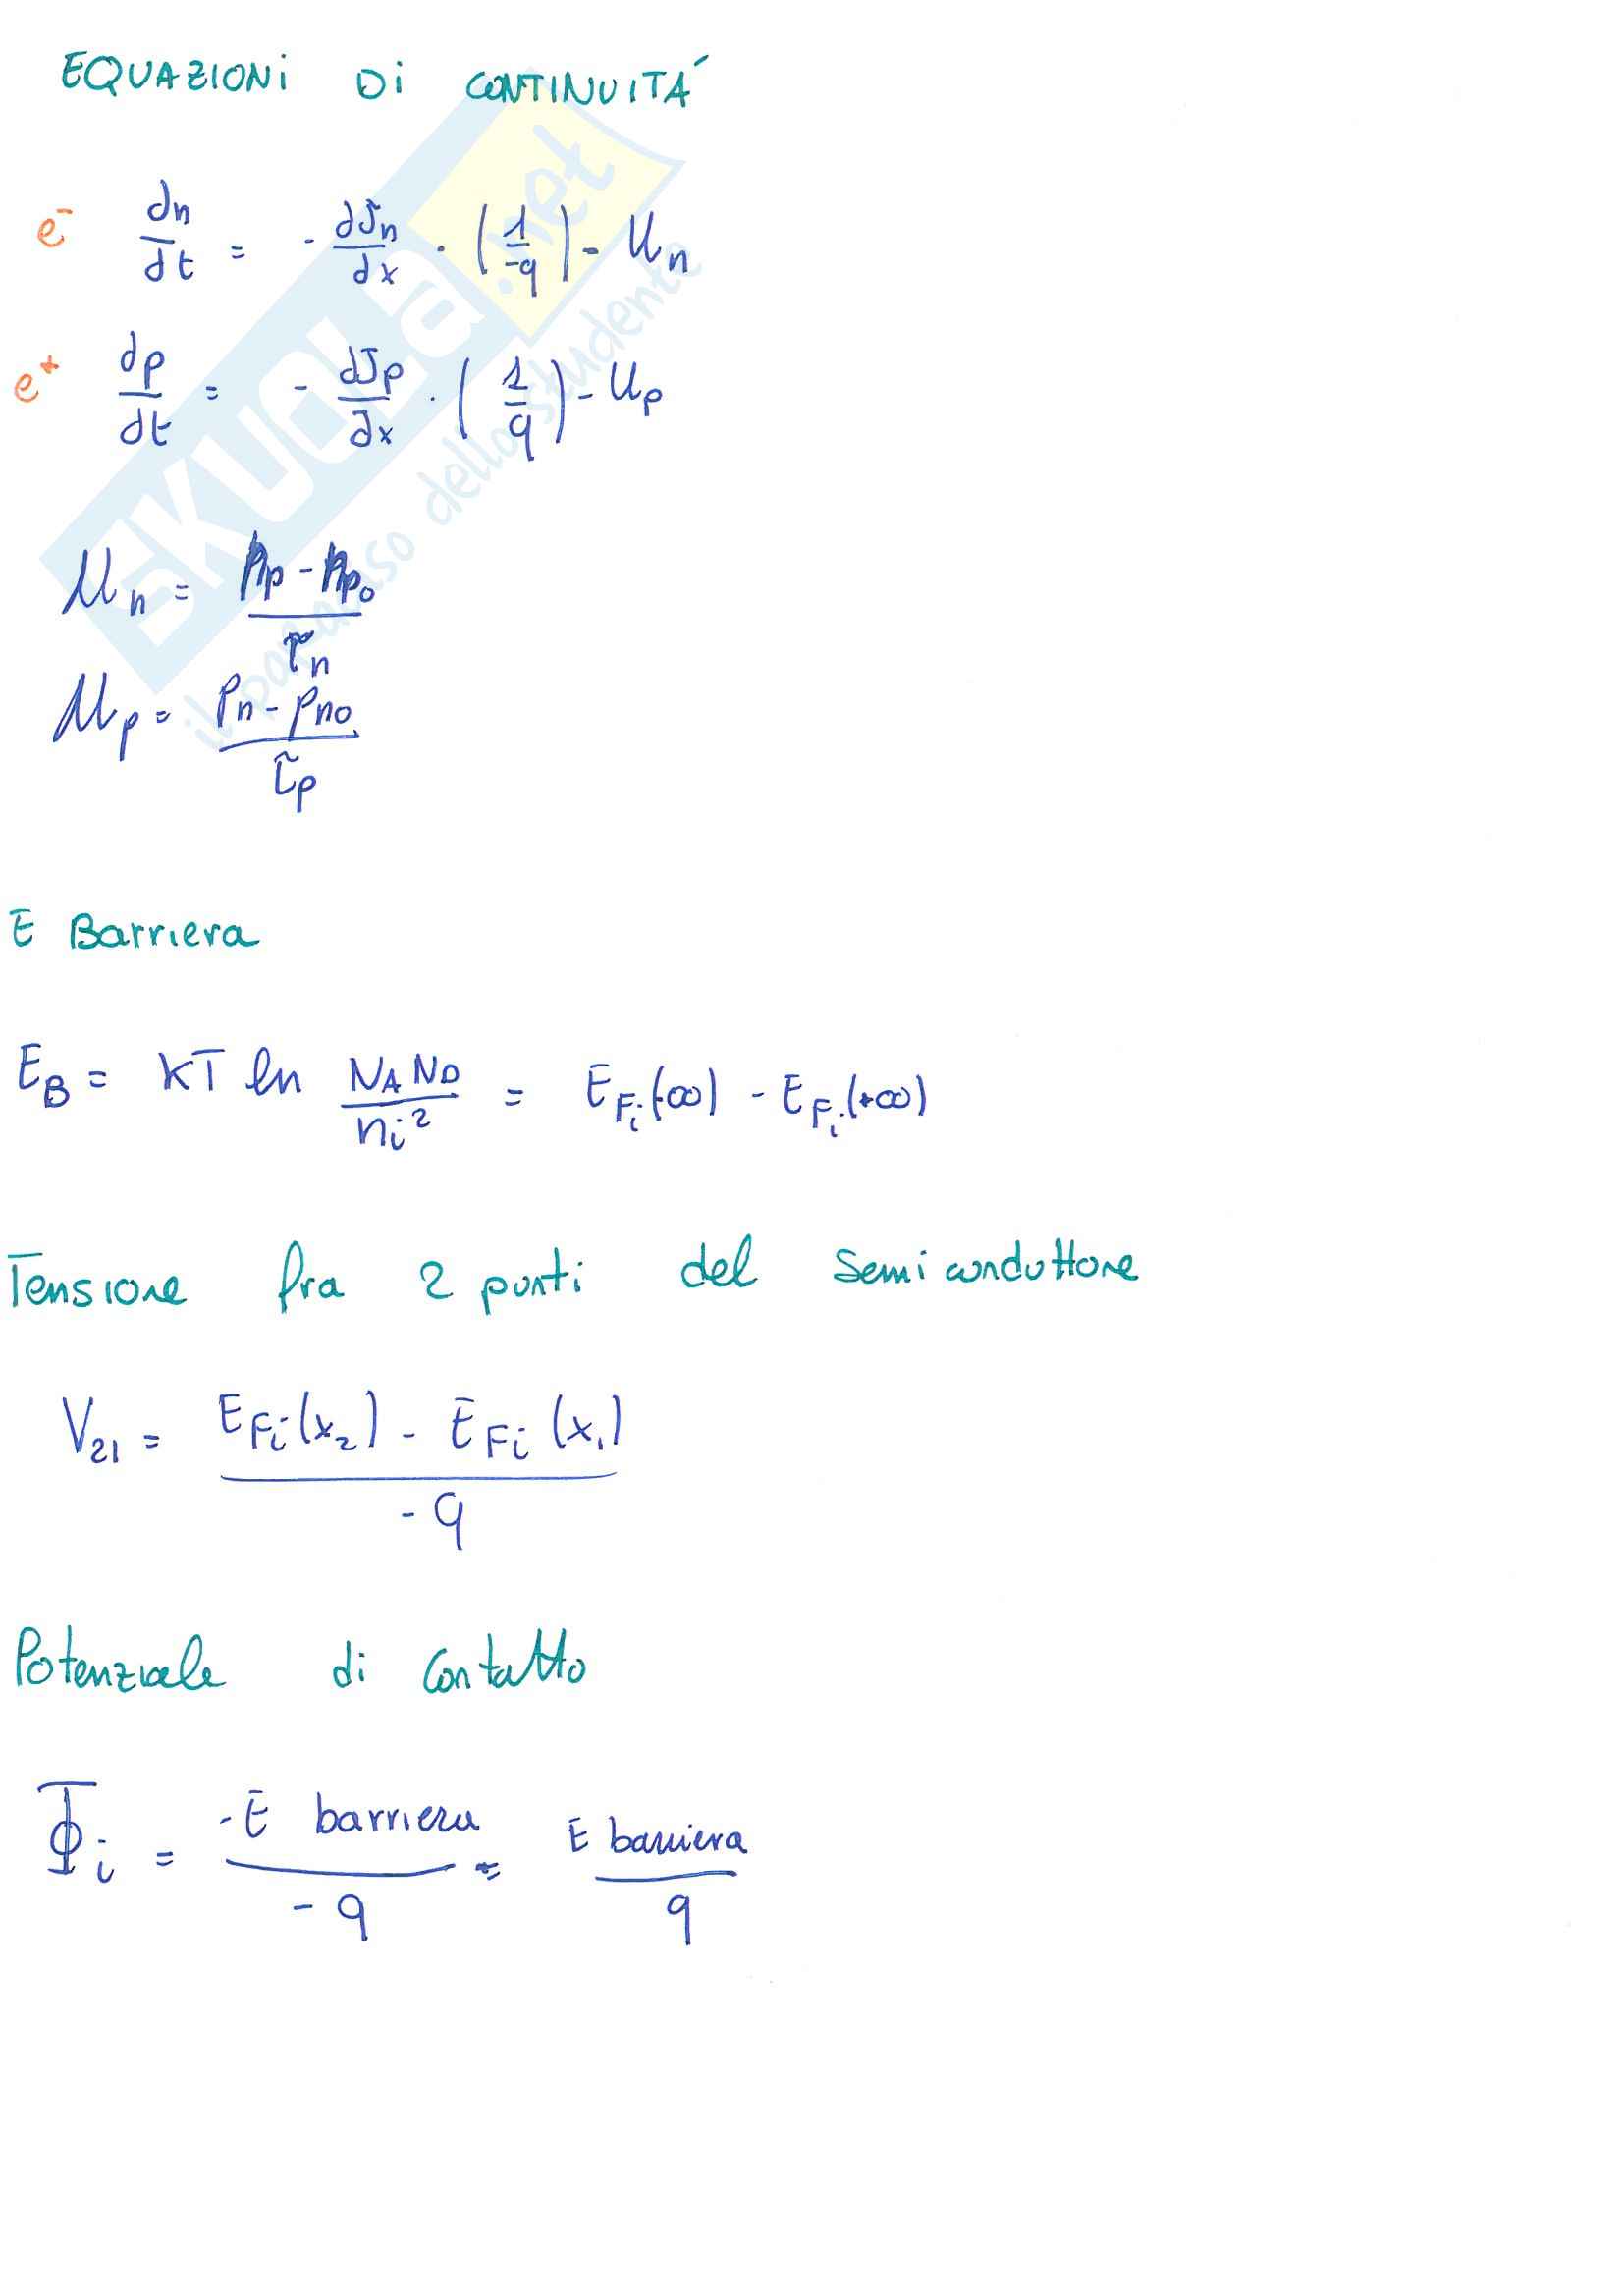 EQUAZIONI DI CONTINUITÀ
e⁻ dn/dt = - dJn/dx · (1/-q) - Un
e⁺ dp/dt = - dJp/dx · (1/q) - Up
Un = (np - npo)/τn
Up = (pn - pno)/τp
E Barriera
EB = KT ln NAND/ni² = EFi(-∞) - EFi(+∞)
Tensione fra 2 punti del semiconduttore
V21 = (EFi(x2) - EFi(x1))/-q
Potenziale di contatto
Φi = -E barriera/-q = E barriera/q
SKUOLA.net
il paradiso dello studente